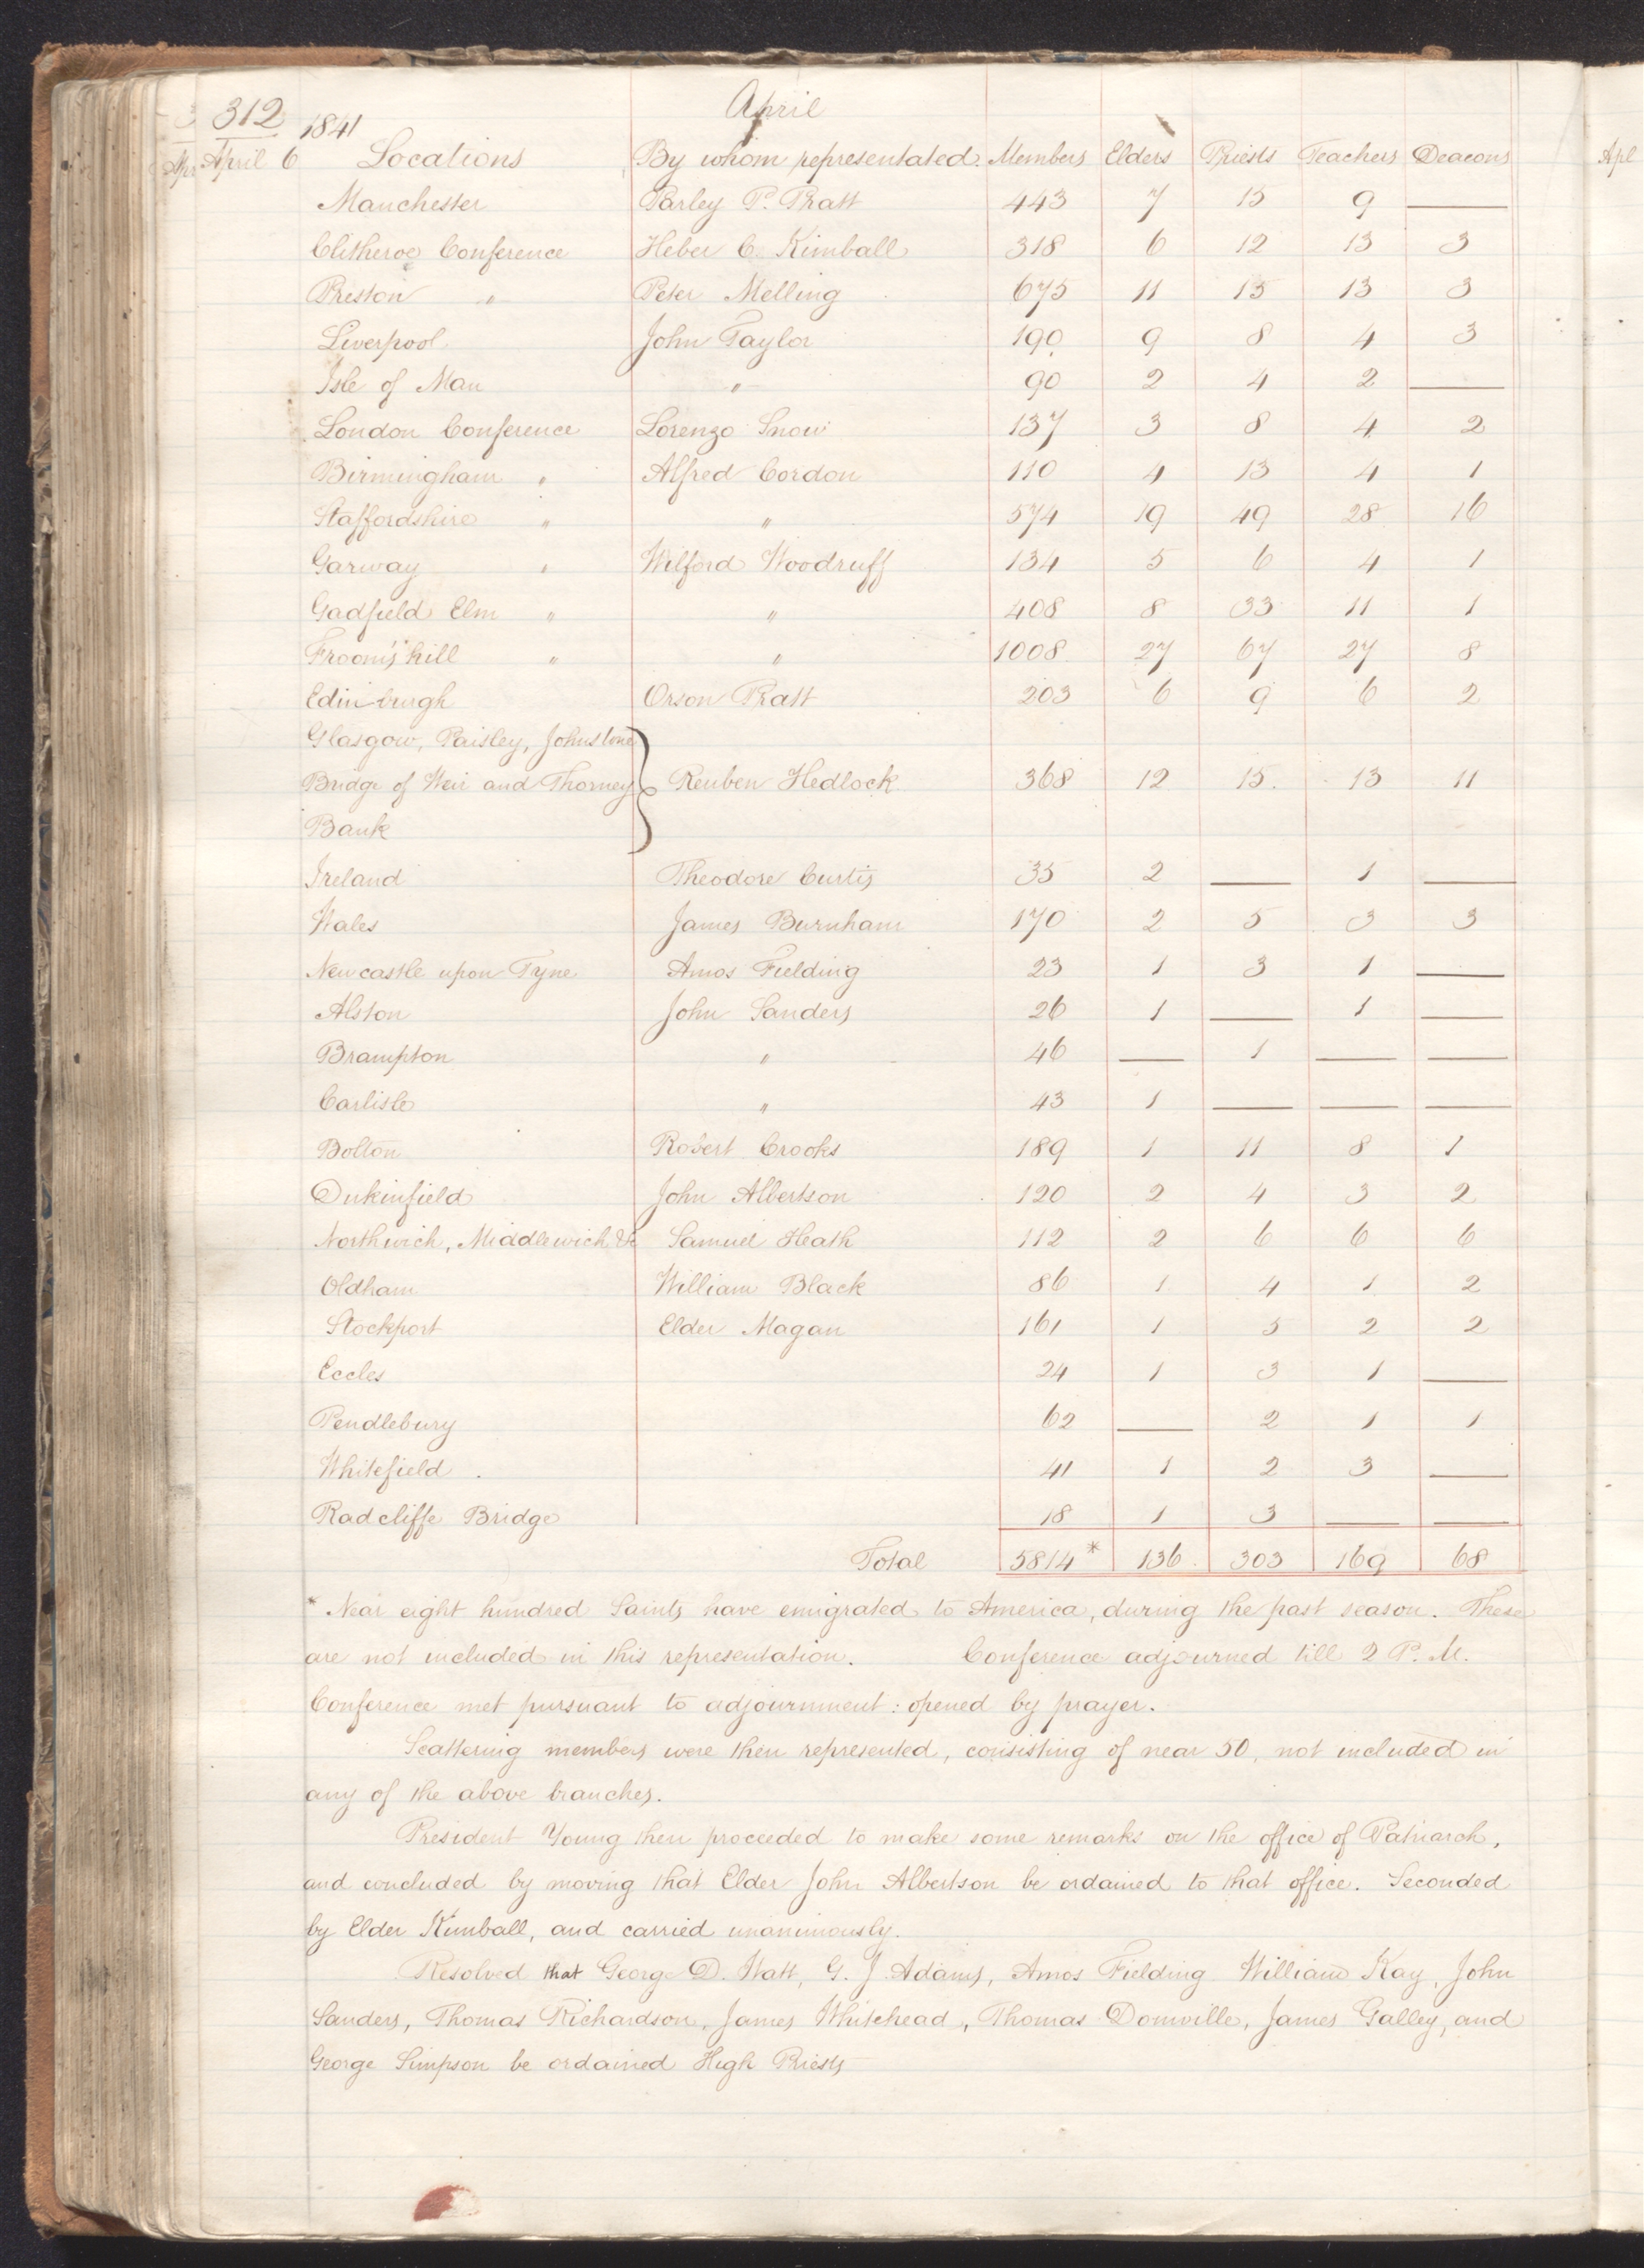 312 April
1841
April 6 Locations By whom representated. Members Elders Priests Teachers Deacons
Manchester Parley P. Pratt 443 7 15 9 —
Clitheroe Conference Heber C. Kimball 318 6 12 13 3
Preston " Peter Melling 675 11 15 13 3
Liverpool John Taylor 190 9 8 4 3
Isle of Man " 90 2 4 2 —
London Conference Lorenzo Snow 137 3 8 4 2
Birmingham " Alfred Cordon 110 4 13 4 1
Staffordshire " " 574 19 49 28 16
Garway " Wilford Woodruff 134 5 6 4 1
Gadfield Elm " " 408 8 33 11 1
Froom's hill " " 1008 27 67 27 8
Edinburgh Orson Pratt 203 6 9 6 2
Glasgow, Paisley, Johnstone
Bridge of Weir and Thorney Reuben Hedlock 368 12 15 13 11
Bank
Ireland Theodore Curtis 35 2 — 1 —
Wales James Burnham 170 2 5 3 3
Newcastle upon Tyne Amos Fielding 23 1 3 1 —
Alston John Sanders 26 1 — 1 —
Brampton " 46 — 1 — —
Carlisle " 43 1 — — —
Bolton Robert Crooks 189 1 11 8 1
Dukinfield John Albertson 120 2 4 3 2
Northwich, Middlewich &c Samuel Heath 112 2 6 6 6
Oldham William Black 86 1 4 1 2
Stockport Elder Magan 161 1 5 2 2
Eccles 24 1 3 1 —
Pendlebury 62 — 2 1 1
Whitefield . 41 1 2 3 —
Radcliffe Bridge 18 1 3 — —
Total 5814* 136 303 169 68
* Near eight hundred Saints have emigrated to America, during the past season. These
are not included in this representation. Conference adjourned till 2 P. M.
Conference met pursuant to adjournment: opened by prayer.
Scattering members were then represented, consisting of near 50, not included in
any of the above branches.
President Young then proceeded to make some remarks on the office of Patriarch,
and concluded by moving that Elder John Albertson be ordained to that office. Seconded
by Elder Kimball, and carried unanimously.
Resolved that George D. Watt, G. J. Adams, Amos Fielding William Kay, John
Sanders, Thomas Richardson, James Whitehead, Thomas Domville, James Galley, and
George Simpson be ordained High Priests
Apl